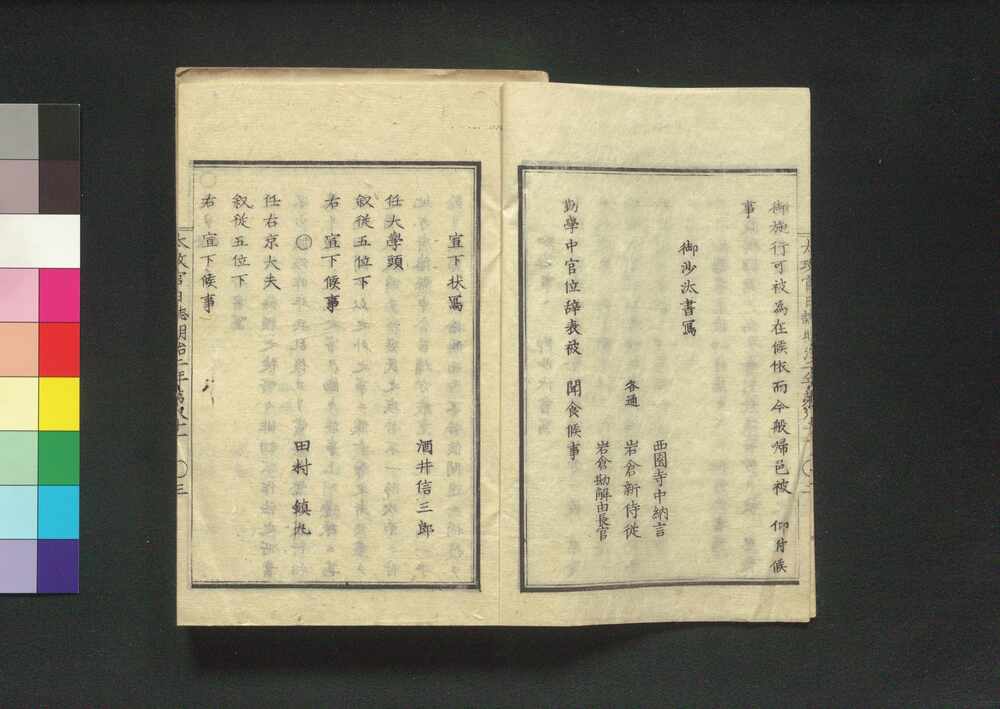 御施行可被為在候依而今般帰邑被　仰付候
事
御沙汰書寫
西園寺中納言
各通　岩倉新侍従
岩倉勘解由長官
勤學中官位辞表被　聞食候事
宣下状寫
酒井信三郎
任大學頭
叙従五位下
右　宣下候事
田村　鎮丸
任右京大夫
叙従五位下
右　宣下候事
太政官日誌明治二年第
三